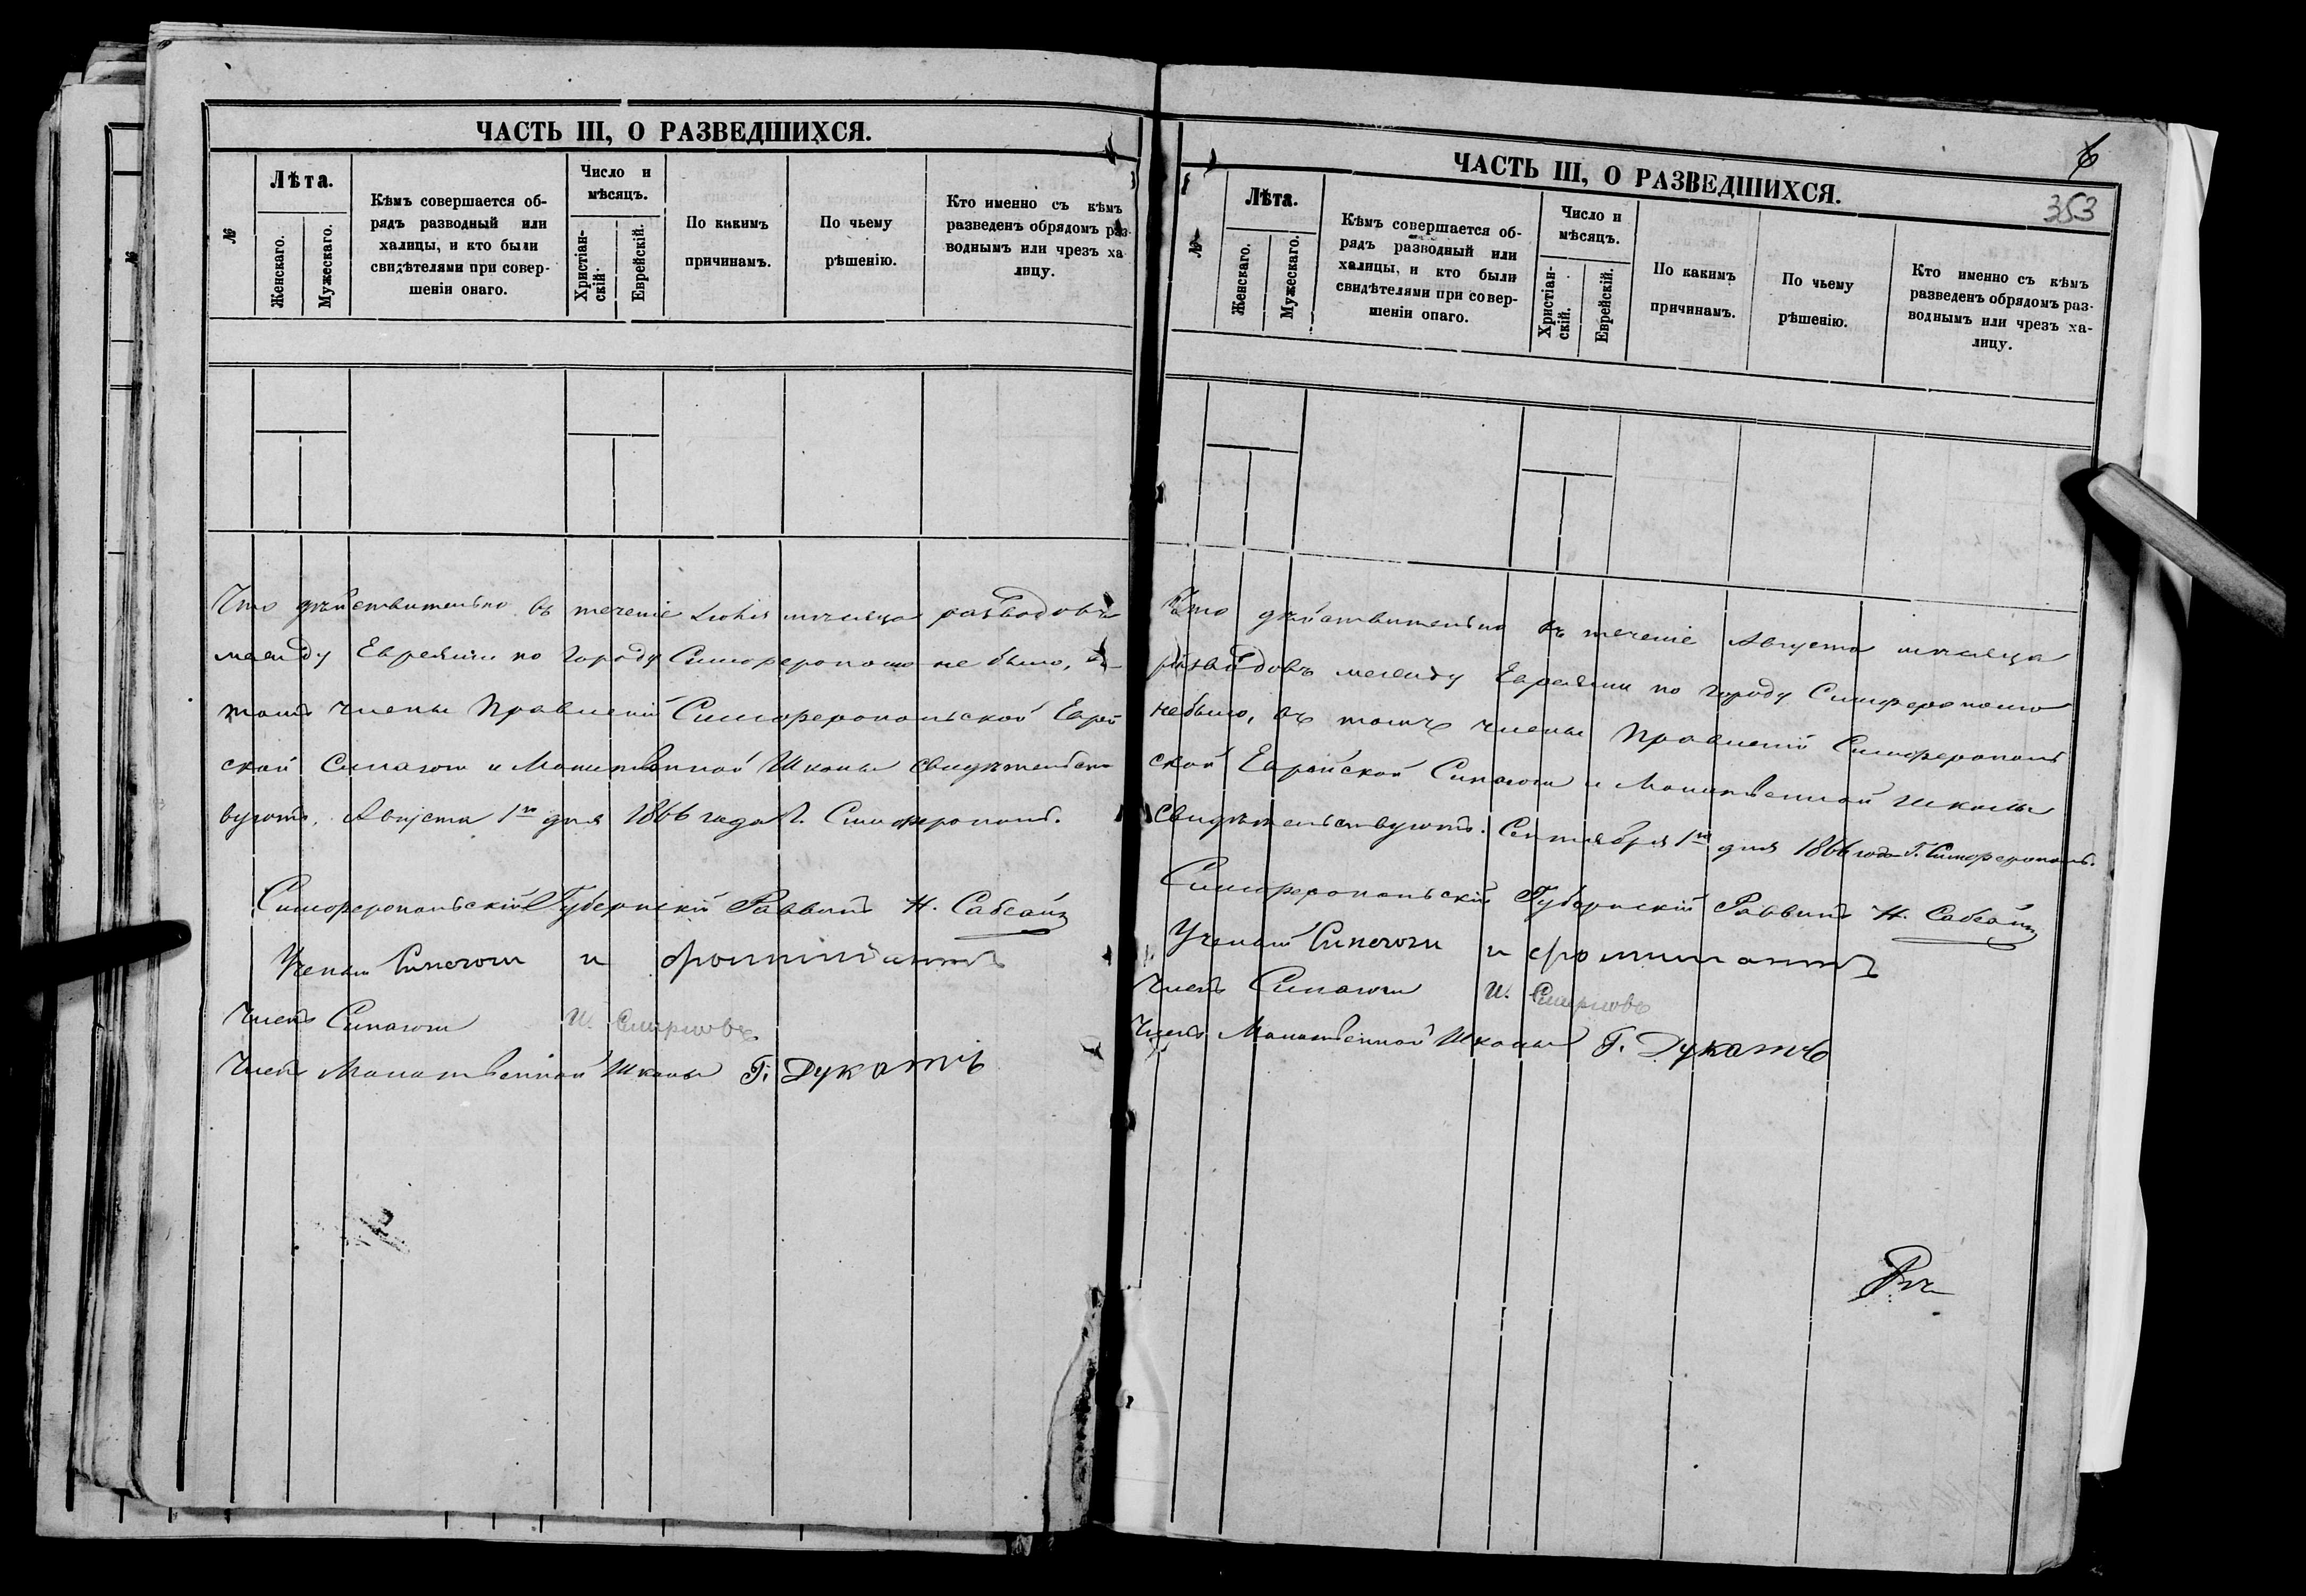 ЧАСТЬ III, О РАЗВЕДШИХСЯ.
№
Лѣта.
Женскаго.
Мужескаго.
Кѣмъ совершается об-
рядъ разводный или
халицы, и кто были
свидѣтелями при совер-
шеніи онаго.
Число и
мѣсяцъ.
Христіан-
скій.
Еврейскій.
По какимъ
причинамъ.
По чьему
рѣшенію.
Кто именно съ кѣмъ
разведенъ обрядомъ раз-
воднымъ или чрезъ ха
лицу.
Что дѣйствительно въ теченіе Іюня мѣсяца разводовъ
между Евреями по городу Симферополю не было, въ
томъ члены Правленій Симферопольской Еврей
ской Синагоги и Молитвенной Школы свидѣтельст
вуютъ. Августа 1го дня 1866 года Г. Симферополь.
Симферопольскій Губернскій Раввинъ Н. Сабсай
Ученый Синагоги и
Членъ Синагоги И. Смирновъ
Членъ Молитвенной Школы Г. Дукатъ
6
353
ЧАСТЬ III, О РАЗВЕДШИХСЯ.
№
Лѣта.
Женскаго.
Мужескаго.
Кѣмъ совершается об-
рядъ разводный или
халицы, и кто были
свидѣтелями при совер-
шеніи онаго.
Число и
мѣсяцъ.
Христіан-
скій.
Еврейскій.
По какимъ
причинамъ.
По чьему
рѣшенію.
Кто именно съ кѣмъ
разведенъ обрядомъ раз-
воднымъ или чрезъ ха-
лицу.
Что дѣйствительно въ теченіе Августа мѣсяца
разводовъ между Евреями по городу Симферополю
небыло, въ томъ члены Правленій Симферополь
ской Еврейской Синагоги и Молитвенной Школы
свидѣтельствуютъ. Сентября 1го дня 1866 года Г. Симферополь.
Симферопольскій Губернскій Раввинъ Н. Сабсай
Ученый Синагоги и
Членъ Синагоги И. Смирновъ
Членъ Молитвенной Школы Г. Дукатъ